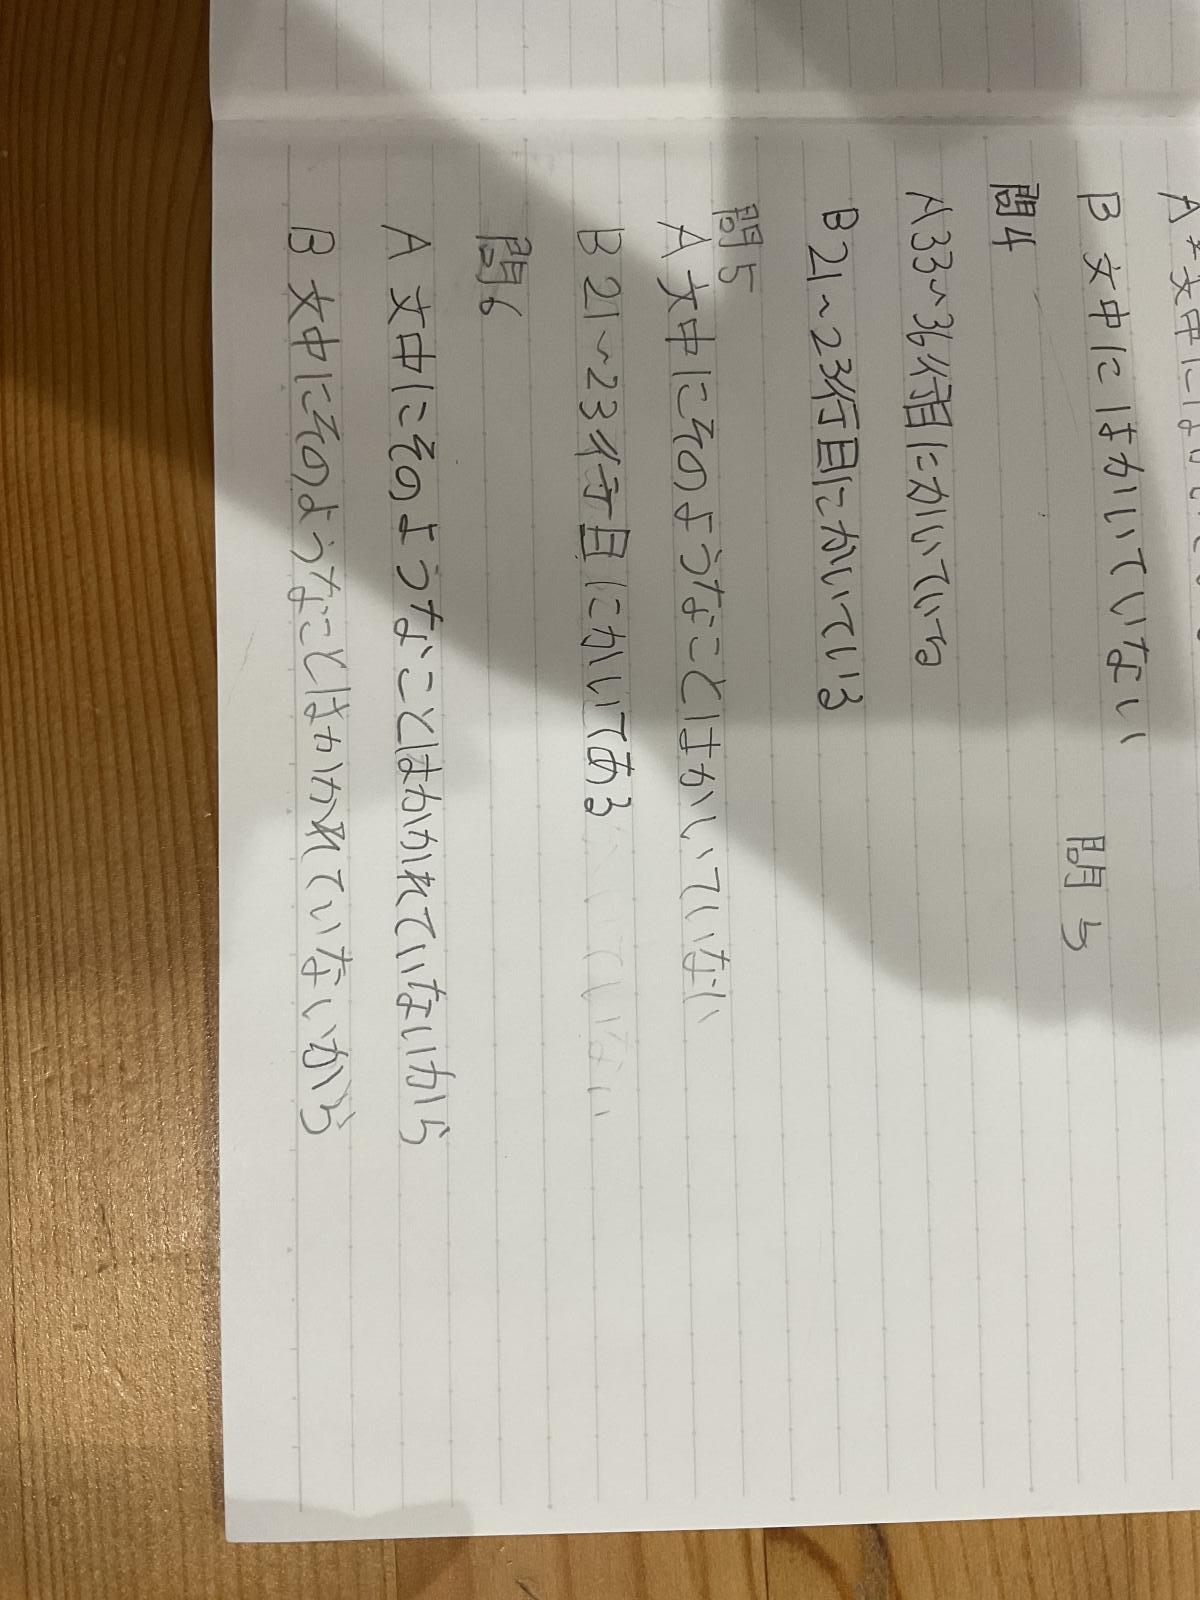 A 文中には
B 文中にはかいていない
問4
A 33~36行目にかいている
B 21~23行目にかいている
問5
問5
A 文中にそのようなことはかいていない
B 21~23行目にかいてある
問6
A 文中にそのようなことはかかれていないから
B 文中にそのようなことはかかれていないから